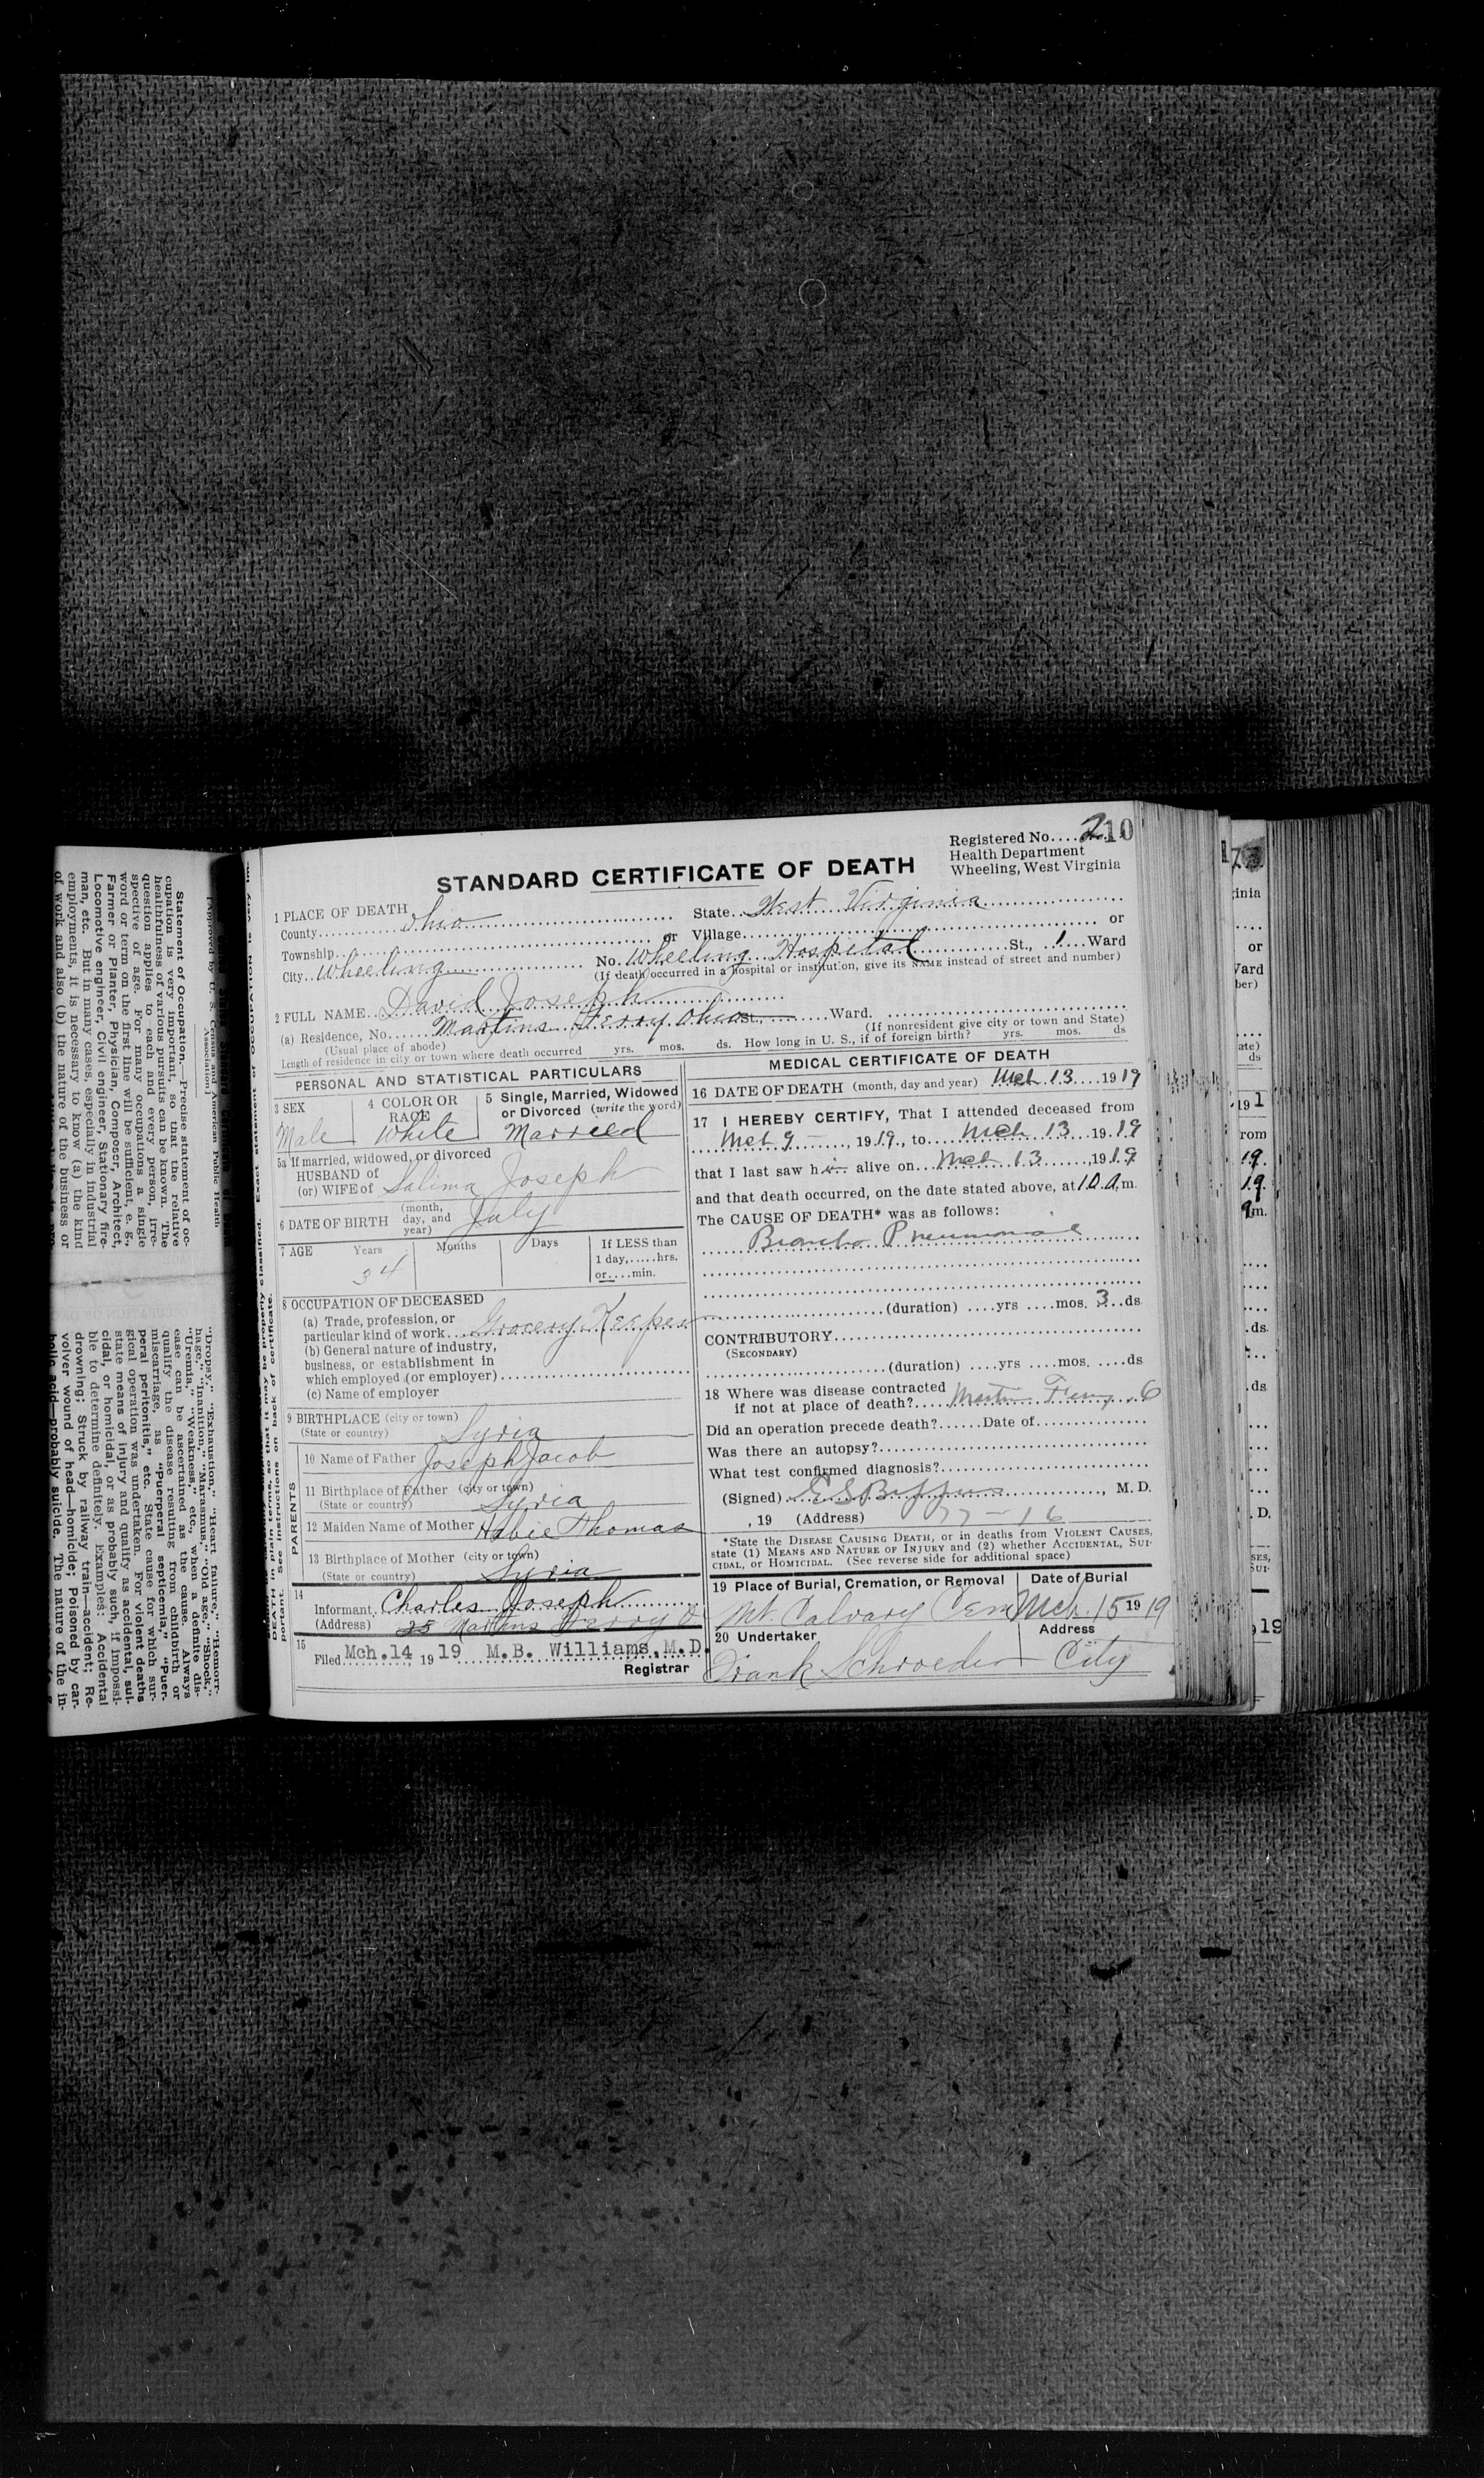 Registered No. 210
Health Department
Wheeling, West Virginia
STANDARD CERTIFICATE OF DEATH
1 PLACE OF DEATH
County Ohio State West Virginia
Township or Village or
City Wheeling No. Wheeling Hospital St., 1 Ward
(If death occurred in a hospital or institution, give its NAME instead of street and number)
2 FULL NAME David Joseph
(a) Residence, No. Martins Ferry Ohio St., Ward.
(Usual place of abode) (If nonresident give city or town and State)
Length of residence in city or town where death occurred yrs. mos. ds. How long in U. S., if of foreign birth? yrs. mos. ds
PERSONAL AND STATISTICAL PARTICULARS
3 SEX
Male
4 COLOR OR RACE
White
5 Single, Married, Widowed
or Divorced (write the word)
Married
5a If married, widowed, or divorced
HUSBAND of
(or) WIFE of Salima Joseph
6 DATE OF BIRTH (month, day, and year) July
7 AGE Years Months Days If LESS than
1 day,.....hrs.
or....min.
34
8 OCCUPATION OF DECEASED
(a) Trade, profession, or
particular kind of work Grocery Keeper
(b) General nature of industry,
business, or establishment in
which employed (or employer)
(c) Name of employer
9 BIRTHPLACE (city or town)
(State or country) Syria
PARENTS
10 Name of Father Joseph Jacob
11 Birthplace of Father (city or town)
(State or country) Syria
12 Maiden Name of Mother Habie Thomas
13 Birthplace of Mother (city or town)
(State or country) Syria
14
Informant Charles Joseph
(Address) Martins Ferry O
15
Filed Mch. 14, 1919 M.B. Williams, M.D.
Registrar
MEDICAL CERTIFICATE OF DEATH
16 DATE OF DEATH (month, day and year) Mch 13 1919
17 I HEREBY CERTIFY, That I attended deceased from
Mch 9, 1919, to Mch 13 1919
that I last saw h alive on Mch 13, 1919
and that death occurred, on the date stated above, at 10 A.m.
The CAUSE OF DEATH* was as follows:
Broncho Pneumonia
(duration) ....yrs ....mos. 3 ds
CONTRIBUTORY
(SECONDARY)
(duration) ....yrs ....mos. ....ds
18 Where was disease contracted
if not at place of death? Martins Ferry, O
Did an operation precede death? Date of
Was there an autopsy?
What test confirmed diagnosis?
(Signed) E S , M. D.
, 19 (Address) 77-16
*State the DISEASE CAUSING DEATH, or in deaths from VIOLENT CAUSES,
state (1) MEANS AND NATURE OF INJURY and (2) whether ACCIDENTAL, SUI-
CIDAL, or HOMICIDAL. (See reverse side for additional space)
19 Place of Burial, Cremation, or Removal Date of Burial
Mt. Calvary Cem Mch. 15 1919
20 Undertaker Address
Frank Schroeder City
Approved by U. S. Census and American Public Health
Association]
Statement of Occupation.—Precise statement of oc-
cupation is very important, so that the relative
healthfulness of various pursuits can be known. The
question applies to each and every person, irre-
spective of age. For many occupations a single
word or term on the first line will be sufficient, e. g.,
Farmer or Planter, Physician, Composer, Architect,
Locomotive engineer, Civil engineer, Stationary fire-
man, etc. But in many cases, especially in industrial
employments, it is necessary to know (a) the kind
of work and also (b) the nature of the business or
"Dropsy," "Exhaustion," "Heart failure," "Hemorr-
hage," "Inanition," "Marasmus," "Old age," "Shock,"
"Uremia," "Weakness," etc., when a definite dis-
ease can be ascertained as the cause. Always
qualify the disease resulting from childbirth or
miscarriage, as "Puerperal septicemia," "Puer-
peral peritonitis," etc. State cause for which sur-
gical operation was undertaken. For violent deaths
state means of injury and qualify as accidental, sui-
cidal, or homicidal, or as probably such, if impossi-
ble to determine definitely. Examples: Accidental
drowning; Struck by railway train—accident; Re-
volver wound of head—homicide; Poisoned by car-
bolic acid—probably suicide. The nature of the in-
DEATH in plain terms, so that it may be properly classified. Exact statement of OCCUPATION is very im-
portant. See instructions on back of certificate.